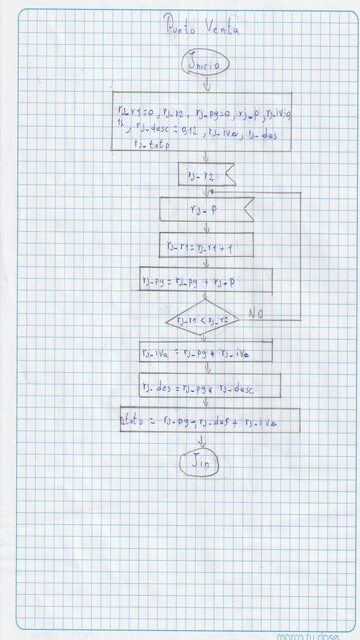 Punto Venta
Inicio
rj_r1=0, rj_r2, rj_pg=0, rj_p, rj_iv=0,
15, rj_desc=0,12, rj_iva, rj_des
rj_toto
rj_r2
rj_p
rj_r1=rj_r1+1
rj_pg=rj_pg + rj_p
rj_r1 < rj_r2
NO
rj_iva = rj_pg * rj_iva
rj_des=rj_pg* rj_desc
rj_pg
rj_des + rj_iva
Fin
marca tu clase